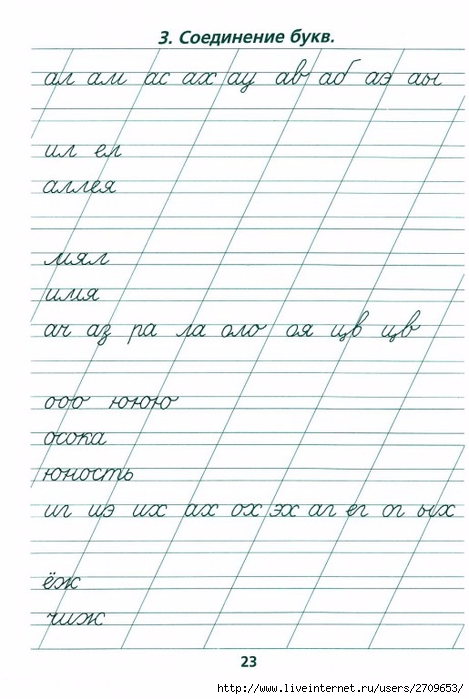 3. Соединение букв.
ал ам ас ах ау ав аб аэ аы
ил ел
аллея
мял
имя
ач аз ра ла оло оя цв цв
ооо ююю
осока
юность
иг иэ их ах ох эх аг ег ог ых
ёж
чиж
23
http://www.liveinternet.ru/users/2709653/